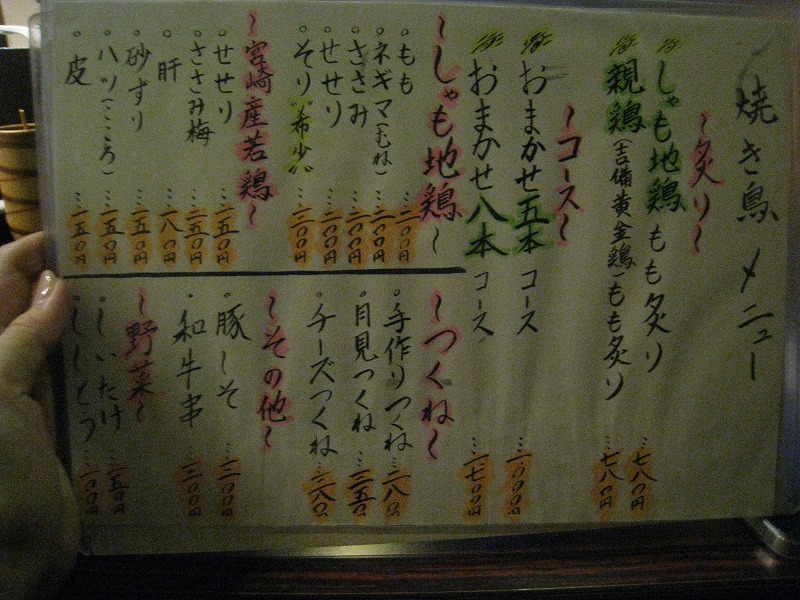 焼き鳥メニュー
〜炙り〜
しゃも地鶏もも炙り…七八〇円
親鶏(吉備黄金鶏)もも炙り…七八〇円
〜コース〜
おまかせ五本コース…一〇〇〇円
おまかせ八本コース…一七〇〇円
〜しゃも地鶏〜
もも…二〇〇円
ネギマ(むね)…二〇〇円
ささみ…二〇〇円
せせり…二〇〇円
そり"希少"…三〇〇円
〜宮崎産若鶏〜
せせり…一五〇円
ささみ梅…一五〇円
肝…一八〇円
砂ずり…一五〇円
ハツ(こころ)…一五〇円
皮…一五〇円
〜つくね〜
手作りつくね…二八〇円
月見つくね…三五〇円
チーズつくね…三八〇円
〜その他〜
豚しそ…二〇〇円
和牛串…三〇〇円
〜野菜〜
しいたけ…一五〇円
ししとう…一〇〇円